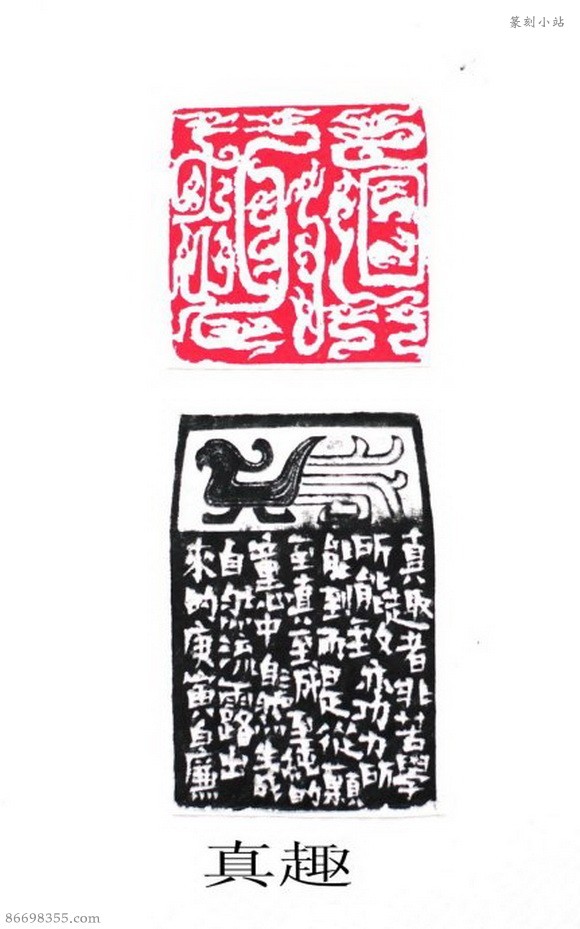 篆刻小站
真趣者非苦學
所能至亦功力所
能到而是從顆
至真至誠至純的
童心中自然生成
自然流露出
來的庚寅白廉
真趣
86698355.com